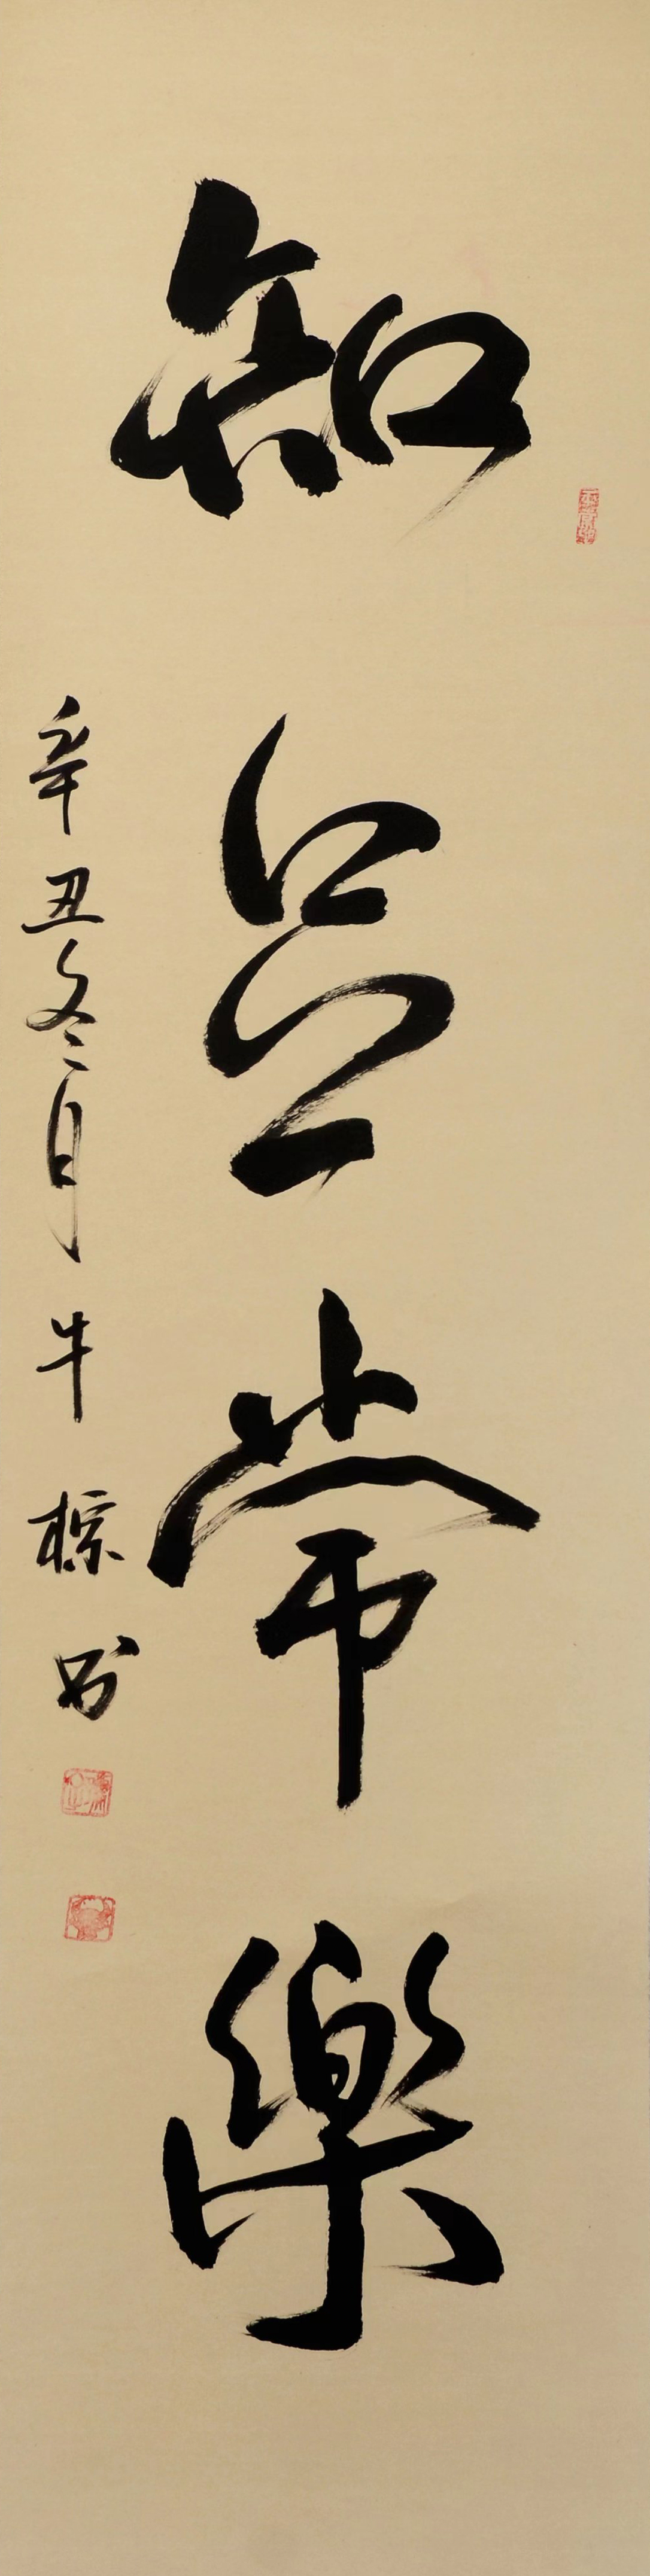 知足常樂
辛丑冬月牛棕书